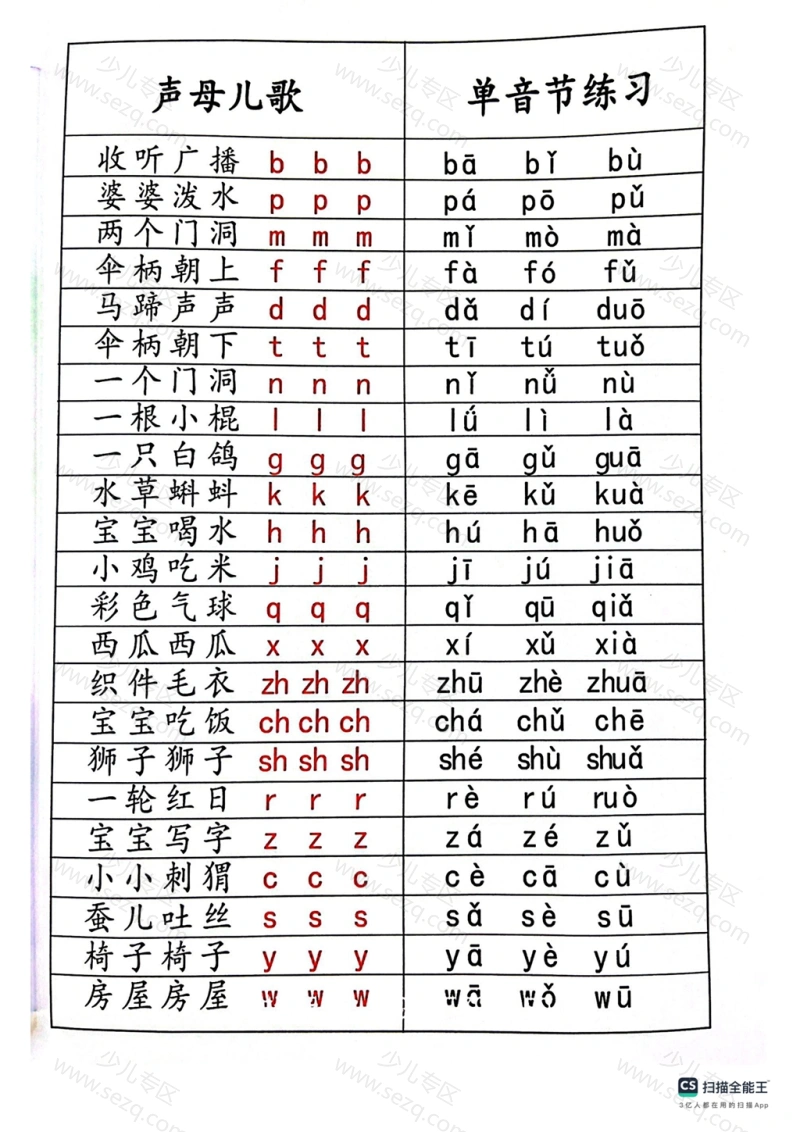 声母儿歌 单音节练习
收听广播 b b b bā bǐ bù
婆婆泼水 p p p pá pō pǔ
两个门洞 m m m mǐ mò mà
伞柄朝上 f f f fà fó fǔ
马蹄声声 d d d dǎ dí duō
伞柄朝下 t t t tī tú tuǒ
一个门洞 n n n nǐ nǚ nù
一根小棍 l l l lǘ lì là
一只白鸽 g g g gā gǔ guā
水草蝌蚪 k k k kē kǔ kuà
宝宝喝水 h h h hú hā huǒ
小鸡吃米 j j j jī jú jiā
彩色气球 q q q qǐ qū qiǎ
西瓜西瓜 x x x xí xǔ xià
织件毛衣 zh zh zh zhū zhè zhuā
宝宝吃饭 ch ch ch chá chǔ chē
狮子狮子 sh sh sh shé shù shuǎ
一轮红日 r r r rè rú ruò
宝宝写字 z z z zá zé zǔ
小小刺猬 c c c cè cā cù
蚕儿吐丝 s s s sǎ sè sū
椅子椅子 y y y yā yè yú
房屋房屋 w w w wā wǒ wū
CS 扫描全能王
3亿人都在用的扫描App
少儿专区
www.sezq.com